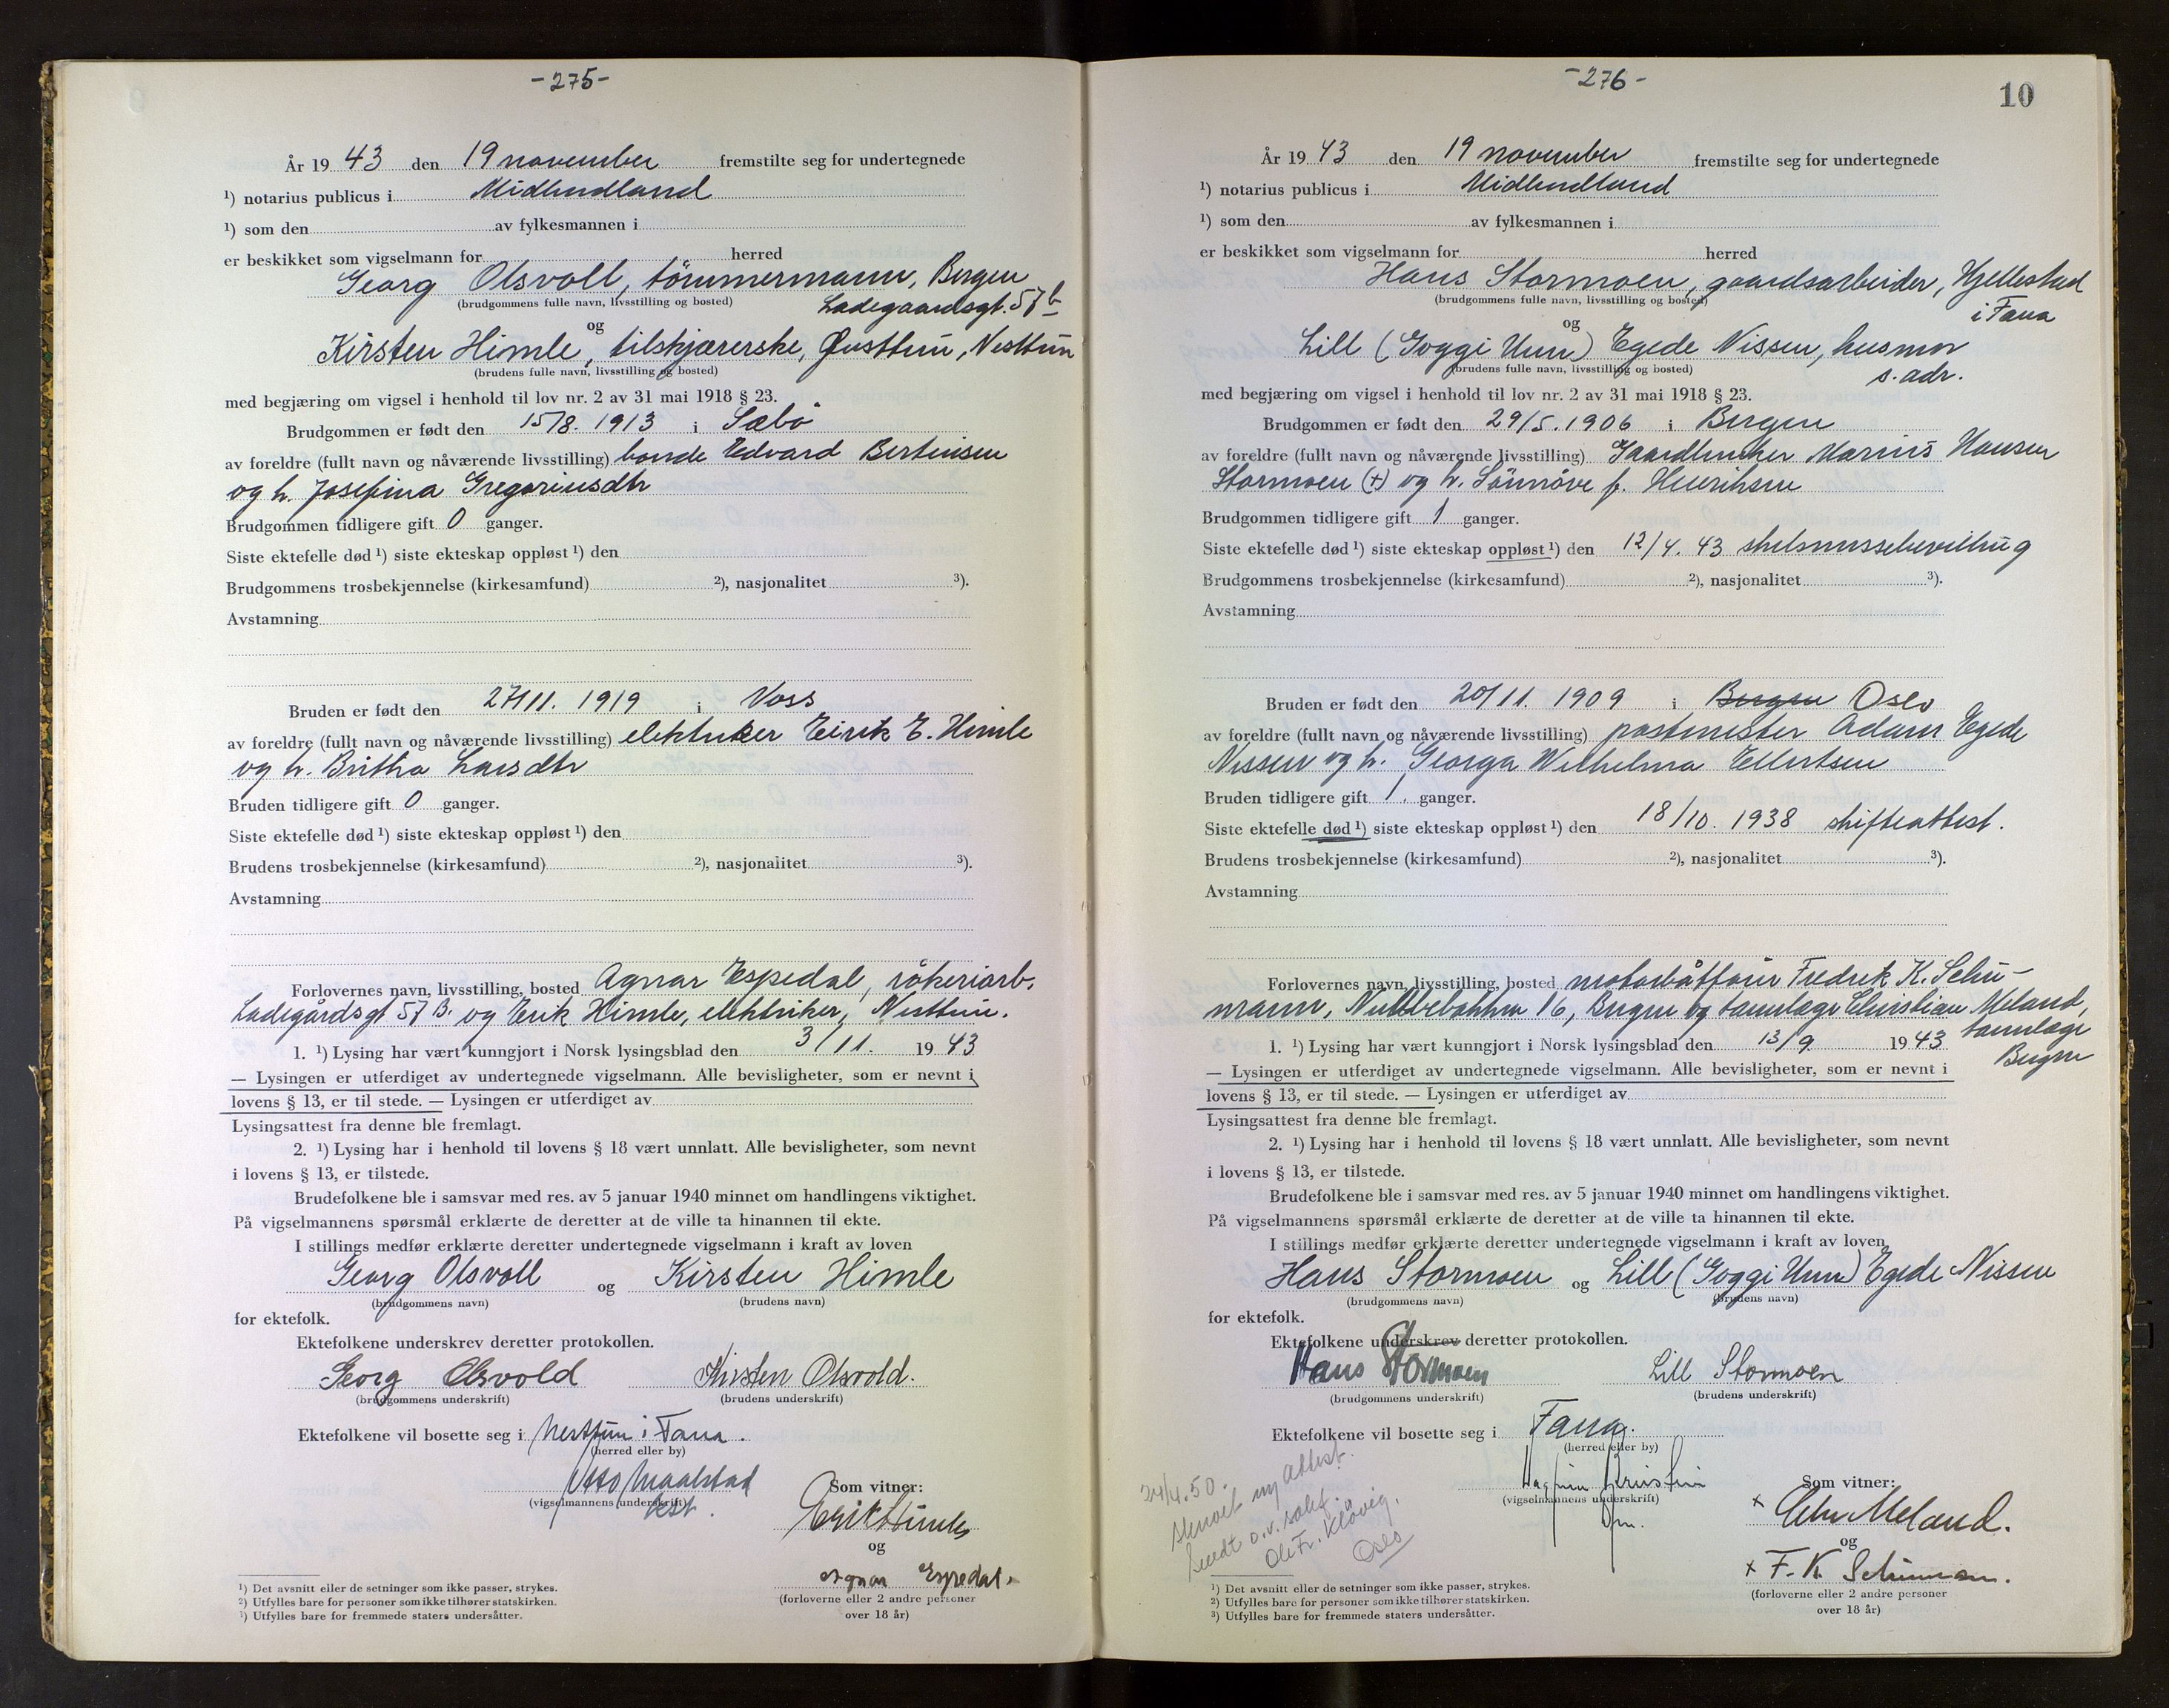 -275-
År 19 43 den 19 november fremstilte seg for undertegnede
¹) notarius publicus i Midhordland
¹) som den av fylkesmannen i
er beskikket som vigselmann for herred
Georg Olsvoll, tömmermann, Bergen
(brudgommens fulle navn, livsstilling og bosted) Ladegaardsgt. 57 b
og
Kirsten Himle, tilskjærerske, Øvsttun, Nesttun
(brudens fulle navn, livsstilling og bosted)
med begjæring om vigsel i henhold til lov nr. 2 av 31 mai 1918 § 23.
Brudgommen er født den 15/8. 1913 i Sæbö
av foreldre (fullt navn og nåværende livsstilling) bonde Edvard Bertinsen
og h. Josefina Gregoriusdtr
Brudgommen tidligere gift 0 ganger.
Siste ektefelle død ¹) siste ekteskap oppløst ¹) den
Brudgommens trosbekjennelse (kirkesamfund) ²), nasjonalitet ³).
Avstamning
Bruden er født den 27/11. 1919 i Voss
av foreldre (fullt navn og nåværende livsstilling) elektriker Eirik E. Himle
og h. Britha Larsdtr
Bruden tidligere gift 0 ganger.
Siste ektefelle død ¹) siste ekteskap oppløst ¹) den
Brudens trosbekjennelse (kirkesamfund) ²), nasjonalitet ³).
Avstamning
Forlovernes navn, livsstilling, bosted Agnar Espedal, rökeriarb.
Ladegårdsgt 57 B. og Erik Himle, elektriker, Nesttun.
1. ¹) Lysing har vært kunngjort i Norsk lysingsblad den 3/11. 19 43
— Lysingen er utferdiget av undertegnede vigselmann. Alle bevisligheter, som er nevnt i
lovens § 13, er til stede. — Lysingen er utferdiget av
Lysingsattest fra denne ble fremlagt.
2. ¹) Lysing har i henhold til lovens § 18 vært unnlatt. Alle bevisligheter, som nevnt
i lovens § 13, er tilstede.
Brudefolkene ble i samsvar med res. av 5 januar 1940 minnet om handlingens viktighet.
På vigselmannens spørsmål erklærte de deretter at de ville ta hinannen til ekte.
I stillings medfør erklærte deretter undertegnede vigselmann i kraft av loven
Georg Olsvoll og Kirsten Himle
(brudgommens navn) (brudens navn)
for ektefolk.
Ektefolkene underskrev deretter protokollen.
Georg Olsvold Kirsten Olsvold.
(brudgommens underskrift) (brudens underskrift)
Ektefolkene vil bosette seg i Nesttun i Fana.
(herred eller by)
Otto
(vigselmannens underskrift)
Som vitner:
Erik Himle
og
Agnar Espedal.
(forloverne eller 2 andre personer
over 18 år)
¹) Det avsnitt eller de setninger som ikke passer, strykes.
²) Utfylles bare for personer som ikke tilhører statskirken.
¹) Utfylles bare for fremmede staters undersåtter.
-276-
10
År 19 43 den 19 november fremstilte seg for undertegnede
¹) notarius publicus i Midhordland
¹) som den av fylkesmannen i
er beskikket som vigselmann for herred
Hans Stormoen, gaardsarbeider, Hjellestad
(brudgommens fulle navn, livsstilling og bosted) i Fana
og
Lill (Goggi Unn) Egede Nissen, husmor
(brudens fulle navn, livsstilling og bosted) s. adr.
med begjæring om vigsel i henhold til lov nr. 2 av 31 mai 1918 § 23.
Brudgommen er født den 29/5. 1906 i Bergen
av foreldre (fullt navn og nåværende livsstilling) Gaardbruker Marius Hansen
Stormoen (+) og h. Sönnöve f. Henriksen
Brudgommen tidligere gift 1 ganger.
Siste ektefelle død ¹) siste ekteskap oppløst ¹) den 12/4. 43 skilsmissebevilling
Brudgommens trosbekjennelse (kirkesamfund) ²), nasjonalitet ³).
Avstamning
Bruden er født den 20/11. 1909 i Bergen Oslo
av foreldre (fullt navn og nåværende livsstilling) postmester Adam Egede
Nissen og h. Georga Wilhelma Ellertsen
Bruden tidligere gift 1. ganger.
Siste ektefelle død ¹) siste ekteskap oppløst ¹) den 18/10. 1938 skifteattest.
Brudens trosbekjennelse (kirkesamfund) ²), nasjonalitet ³).
Avstamning
Forlovernes navn, livsstilling, bosted motorbåtförer Fredrik K. Schu-
mann, Nubbebakken 16, Bergen og tannlæge Christian Meland,
tannlæge
Bergen
1. ¹) Lysing har vært kunngjort i Norsk lysingsblad den 13/9 19 43
— Lysingen er utferdiget av undertegnede vigselmann. Alle bevisligheter, som er nevnt i
lovens § 13, er til stede. — Lysingen er utferdiget av
Lysingsattest fra denne ble fremlagt.
2. ¹) Lysing har i henhold til lovens § 18 vært unnlatt. Alle bevisligheter, som nevnt
i lovens § 13, er tilstede.
Brudefolkene ble i samsvar med res. av 5 januar 1940 minnet om handlingens viktighet.
På vigselmannens spørsmål erklærte de deretter at de ville ta hinannen til ekte.
I stillings medfør erklærte deretter undertegnede vigselmann i kraft av loven
Hans Stormoen og Lill (Goggi Unn) Egede Nissen
(brudgommens navn) (brudens navn)
for ektefolk.
Ektefolkene underskrev deretter protokollen.
Hans Stormoen Lill Stormoen
(brudgommens underskrift) (brudens underskrift)
Ektefolkene vil bosette seg i Fana.
(herred eller by)
(vigselmannens underskrift)
24/4.50.
skrevet ny attest.
sendt o.r.sakf.
Ole Fr. Kløvig,
Oslo
Som vitner:
x Chr Meland.
og
x F. K Schumann.
(forloverne eller 2 andre personer
over 18 år)
¹) Det avsnitt eller de setninger som ikke passer, strykes.
²) Utfylles bare for personer som ikke tilhører statskirken.
³) Utfylles bare for fremmede staters undersåtter.